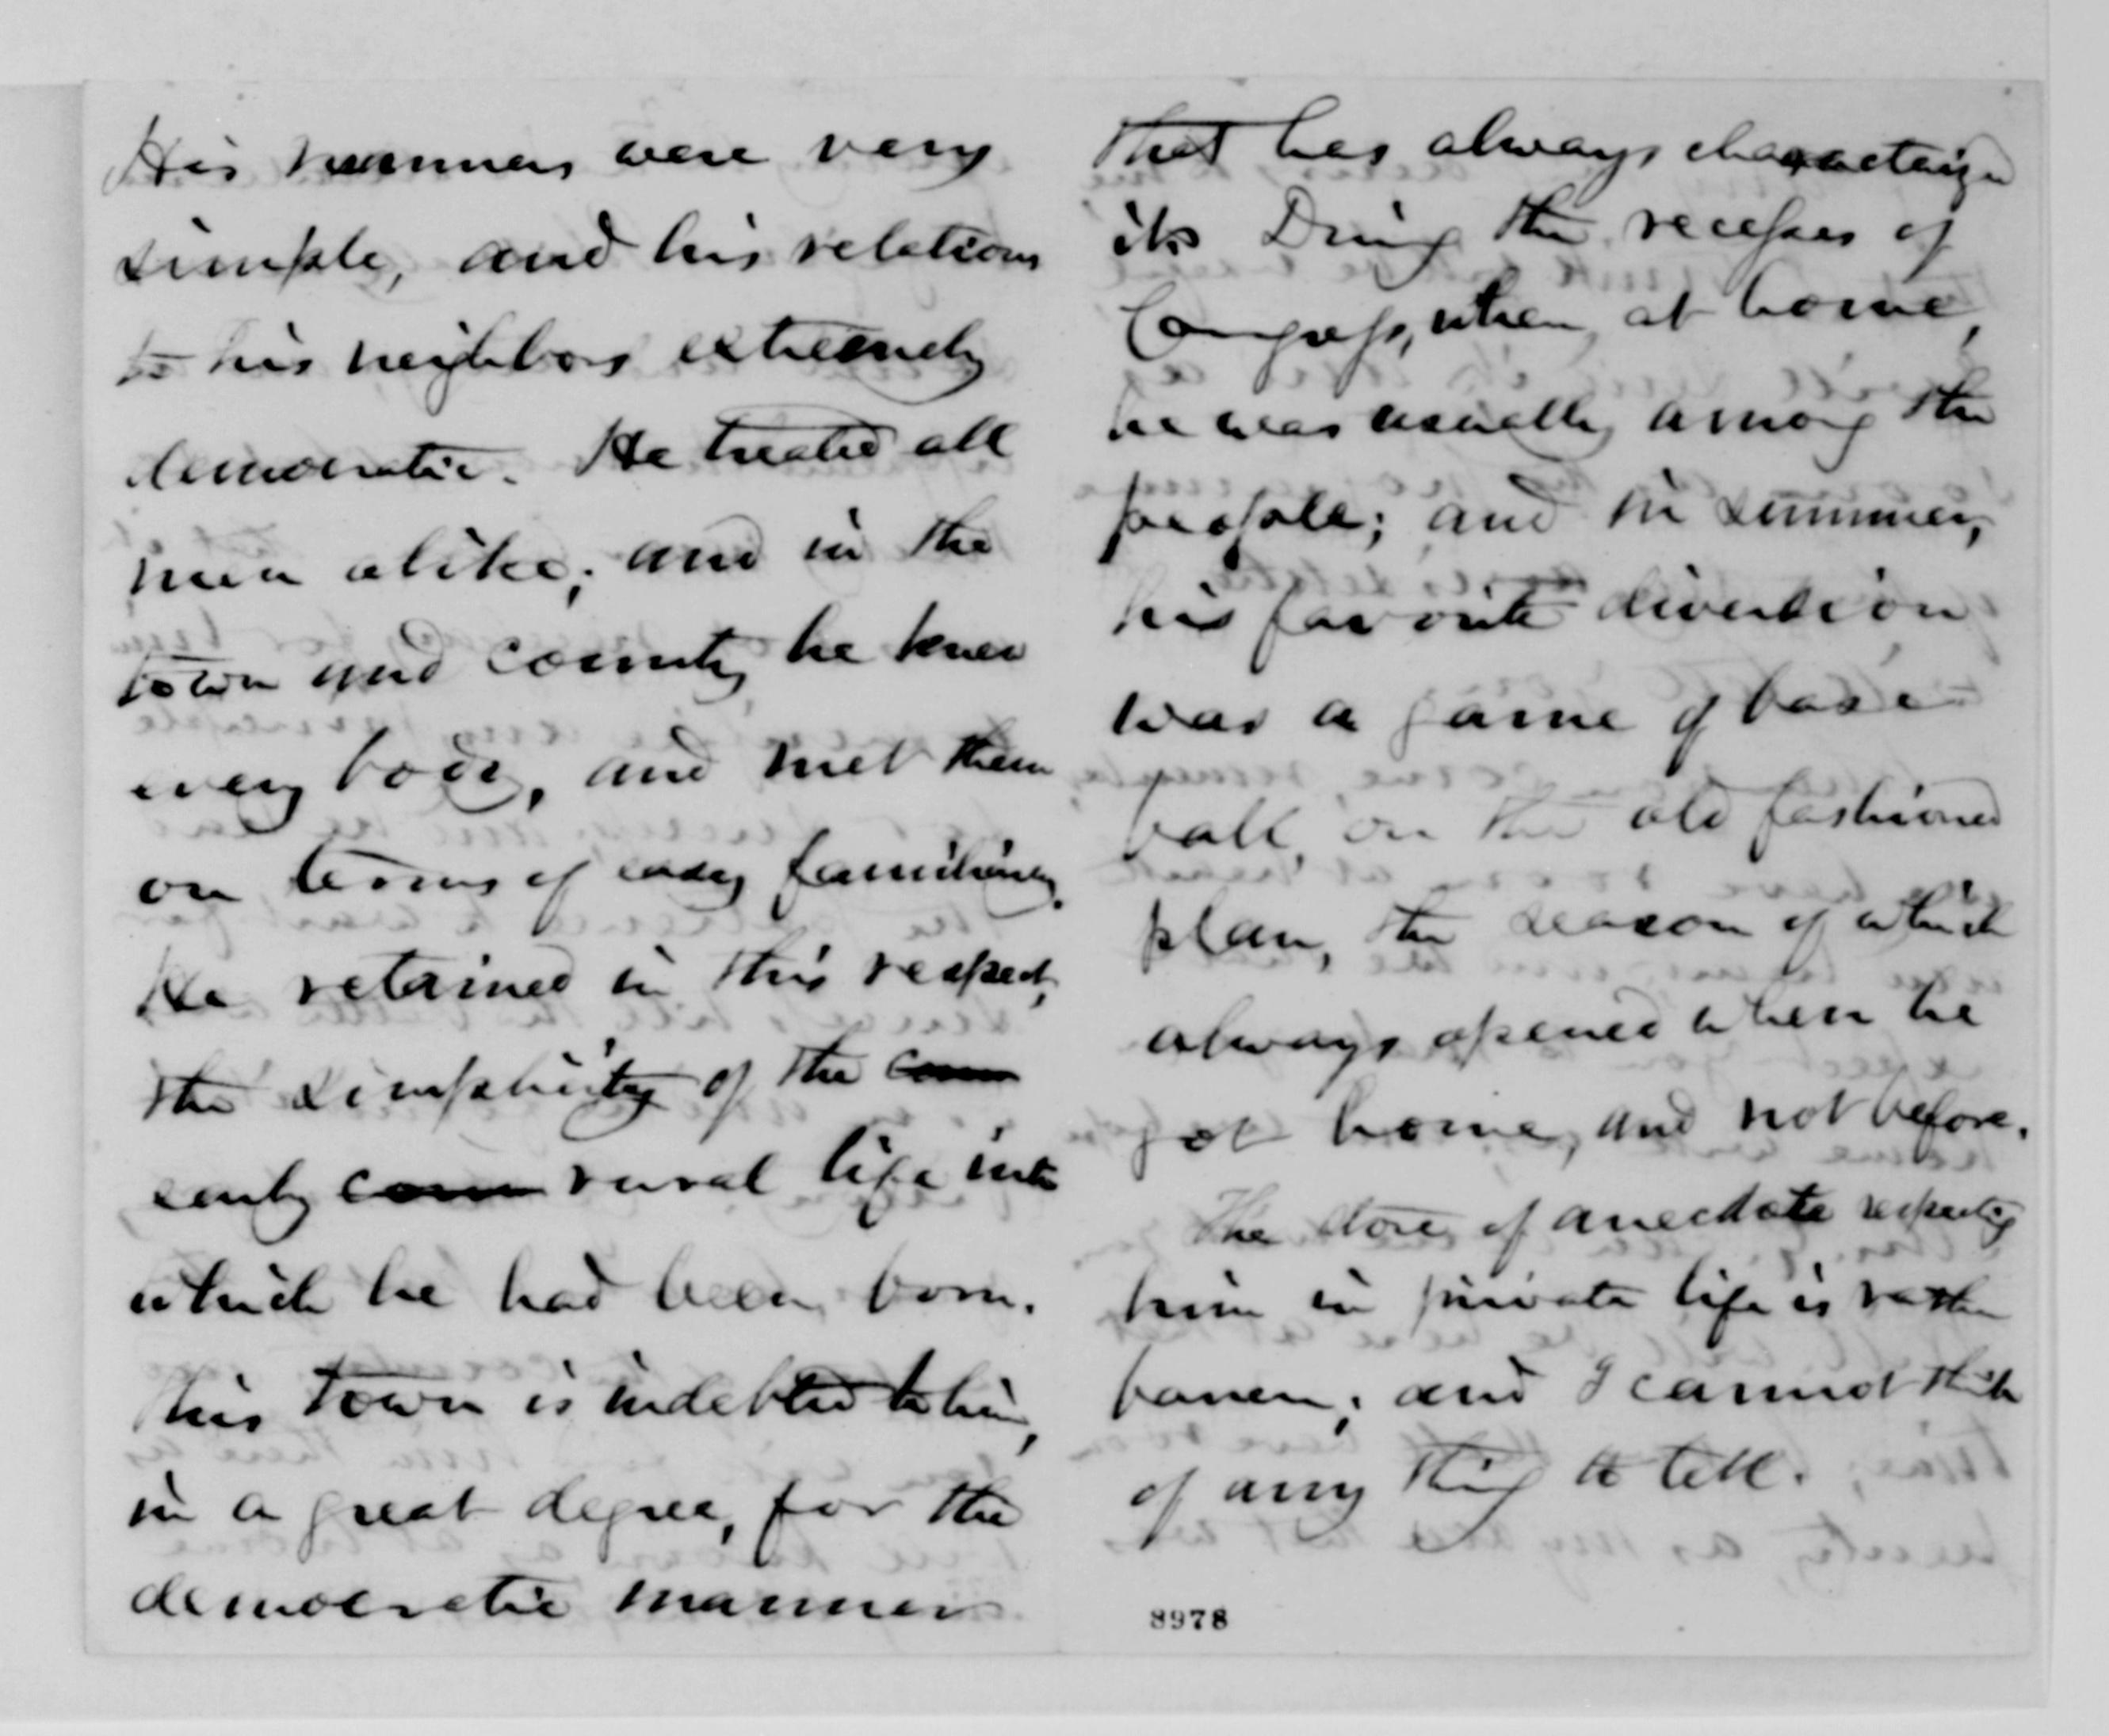 His manners were very
simple, and his relations
to his neighbors extremely
democratic. He treated all
men alike; and in the
town and county he knew
every body, and met them
on terms of easy familiarity.
He retained in this respect,
the simplicity of the com
early com rural life into
which he had been born.
This town is indebted to him,
in a great degree, for the
democratic manners
that has always characterized
it. During the recesses of
Congress, when at home,
he was usually among the
people; and in summer,
his favorite diversion
was a game of base
ball, on the old fashioned
plan, the season of which
always opened when he
got home, and not before.
The store of anecdote respecting
him in private life is rather
barren; and I cannot think
of any thing to tell.
8978